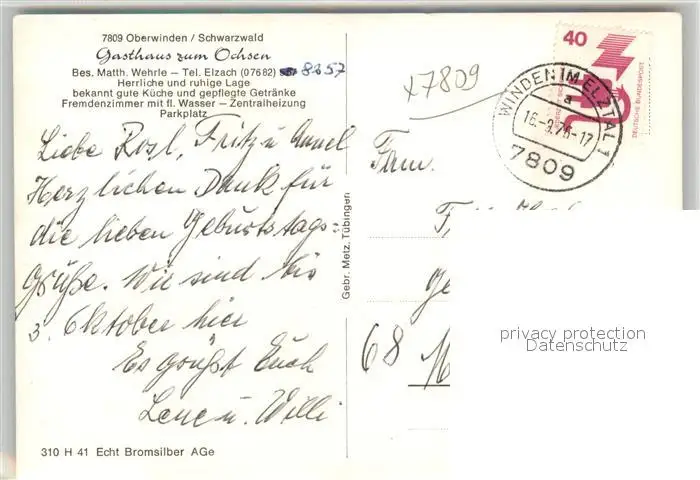 7809 Oberwinden / Schwarzwald
Gasthaus zum Ochsen
Bes. Matth. Wehrle — Tel. Elzach (07682) 8257
Herrliche und ruhige Lage
bekannt gute Küche und gepflegte Getränke
Fremdenzimmer mit fl. Wasser — Zentralheizung
Parkplatz
Liebe Rosl, Fritz u Annel
Herzlichen Dank für
die lieben Geburtstags=
grüße. Wir sind bis
3. Oktober hier
Es grüßt Euch
Lene u. Willi
310 H 41 Echt Bromsilber AGe
Gebr. Metz, Tübingen
x7809
40
DEUTSCHE BUNDESPOST
WINDEN IM ELZTAL 1
a
16-9.76-17
7809
Fam.
68
privacy protection
Datenschutz